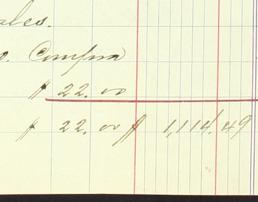 ales.
o. Compra
$ 22.00
$ 22.00 $ 1,114.49